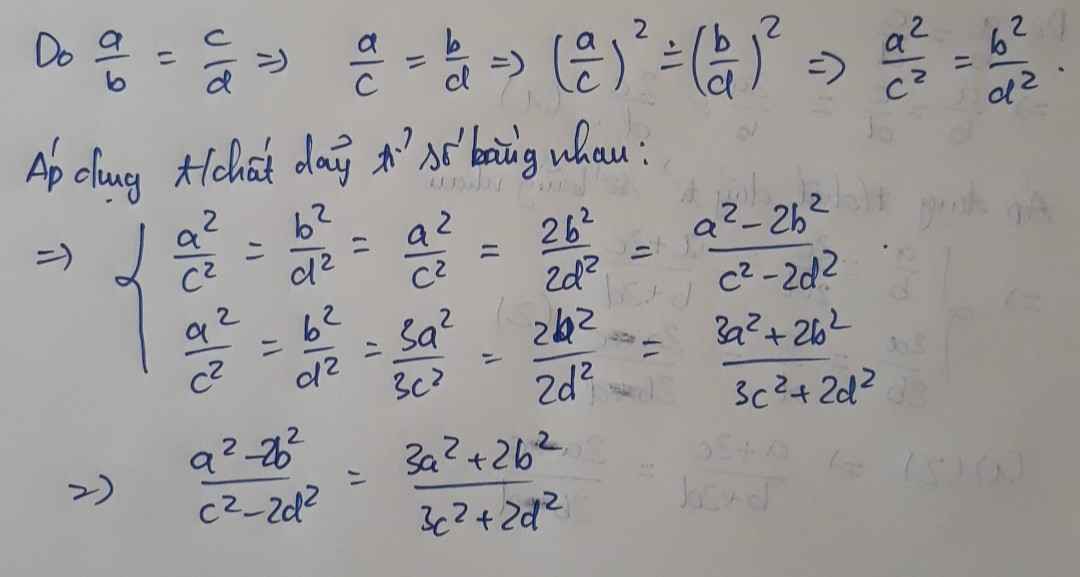 Do a/b = c/d => a/c = b/d => (a/c)² = (b/d)² => a²/c² = b²/d².
Áp dụng t/chất dãy tỉ số bằng nhau:
=> { a²/c² = b²/d² = a²/c² = 2b²/2d² = a² - 2b²/c² - 2d²
a²/c² = b²/d² = 3a²/3c² = 2b²/2d² = 3a² + 2b²/3c² + 2d²
=> a² - 2b²/c² - 2d² = 3a² + 2b²/3c² + 2d²